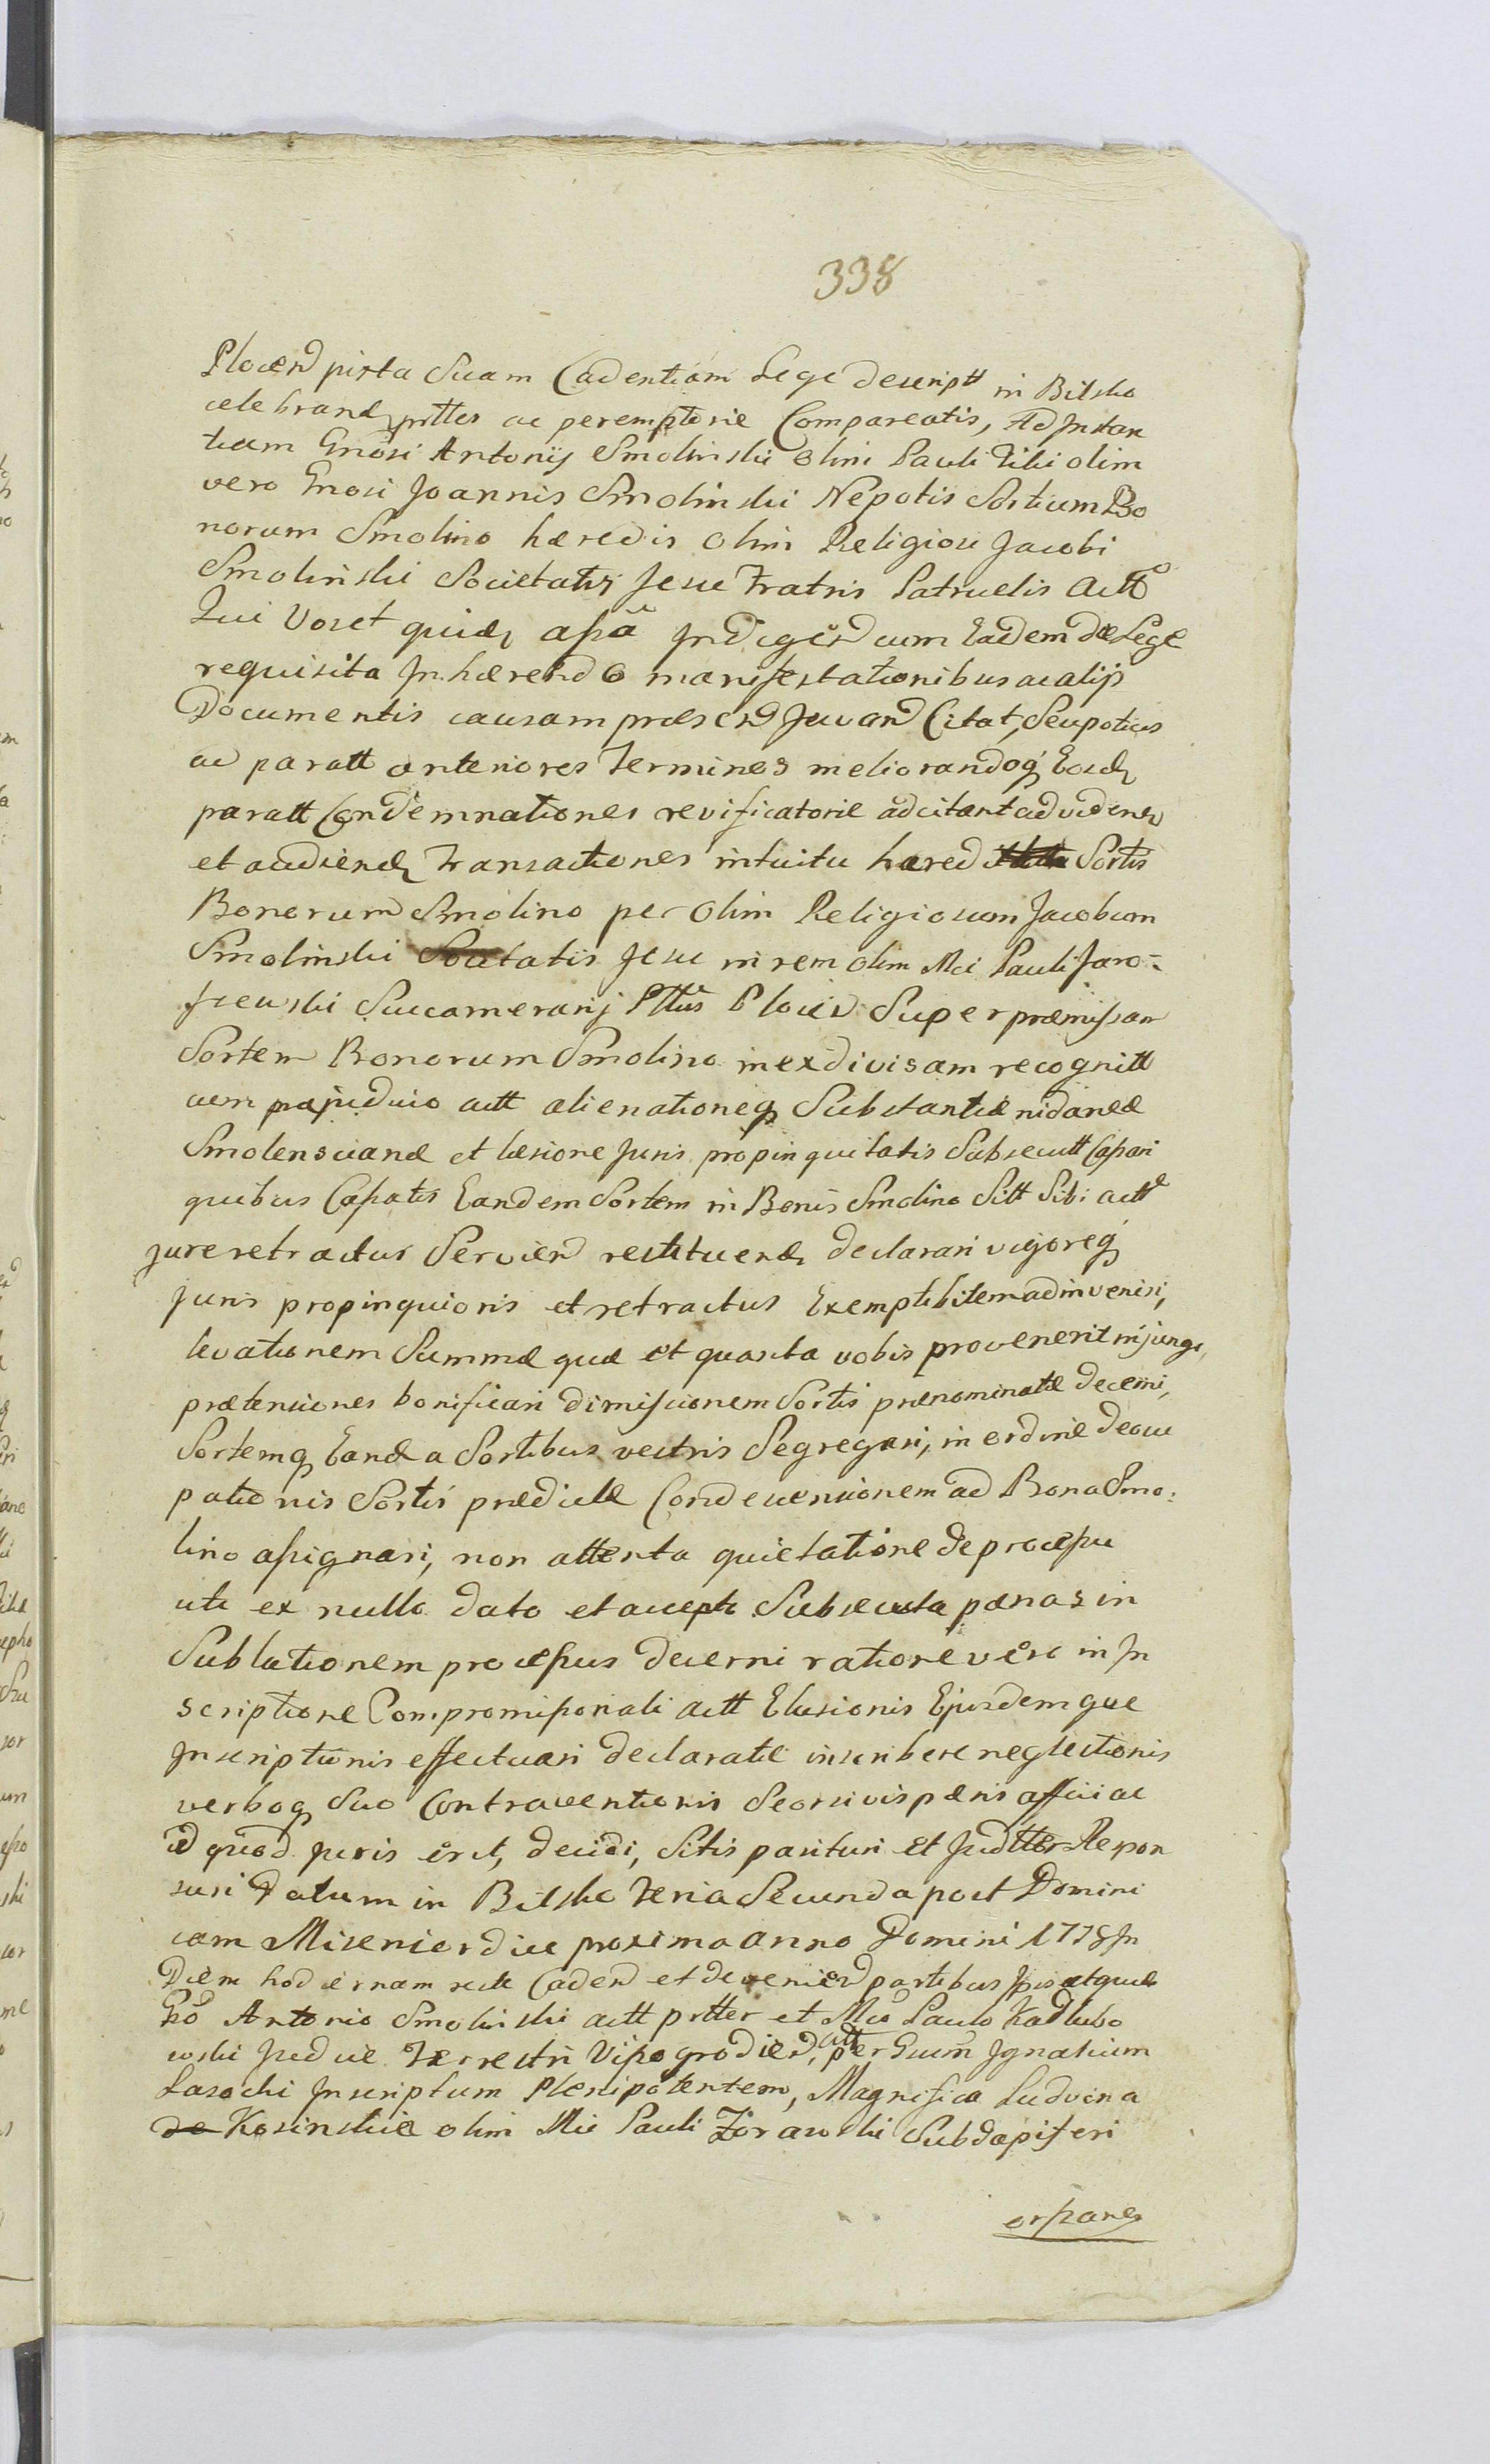 338
Plocen juxta Suam Cadentiam Lege descriptt in Bilsko
celebrand ptter ac peremptorie Compareatis, Ad Jnstan
tiam Gnosi Antonij Smolinski olim Pauli Filii olim
vero Gnosi Joannis Smolinski Nepotis Sortium Bo
norum Smolino hæredis olim Religiosi Jacobi
Smolinski Societatis Jesu Fratris Patruelis Actt
Qui Vos et quid Jndigen cum Eadem de Lege
requisita Jnhærendo manifestationibus ac alijs
Documentis causam præsen Juvan Citat, Seu potius
ac paratt anteriores Terminos meliorandoq Eosd
paratt Condemnationes revificatorie adcitant ad videnď
et audiend Transactiones intuitu hæred Sortis
Bonorum Smolino per olim Religiosum Jacobum
Smolinski Societatis Jesu in rem olim Mci Pauli Jaro-
szewski Succamerarij Plocen Super præmissam
Sortem Bonorum Smolino inexdivisam recognitt
cum præjudicio actt alienationeq Substantiæ
Smolensciana et læsione Juris propinquitatis Subsecutt Cassari
quibus Cassatis Eandem Sortem in Bonis Smolino Sitt Sibi actt
jure retractus Servien restituend declarari vigoreq
Juris propinquioris et retractus Exemptibitem adinveniri,
levationem Summæ quæ et quanta vobis provenerit injungi,
prætensiones bonificari dimissionem Sortis prænominatæ decerni,
Sortemq Eand a Sortibus vestris Segregari, in ordine deocu
pationis Sortis prædictæ Condescensionem ad Bona Smo:
lino assignari, non attenta quietatione de processu
uti ex nullo dato et accepto Subsecuta pænas in
Sublationem processus decerni ratione vero in Jn
scriptione Compromissionali actt Elusionis Ejusdemque
Jnscriptionis effectuari declaratæ inscribere neglectionis
verboq Suo Contraventionis Seorsivis pænis affici ac
id quod juris erit, decidi, Sitis parituri et Judtter Respon
suri Datum in Bilsko Feria Secunda post Domini
cam Misericordiæ proxima anno Domini 1778 Jn
Diem hodiernam recte Caden et devenien partibus Jpsis atque
Gso Antonio Smolinski actt ptter et Mco Paulo Kadlubo
wski Judice Terrestri Vissogrodien, att per Gsum Jgnatium
Lasocki Jnscriptum Plenipotentem, Magnifica Ludvina
de Kosinskie olim Mci Pauli Zorawski Subdapiferi